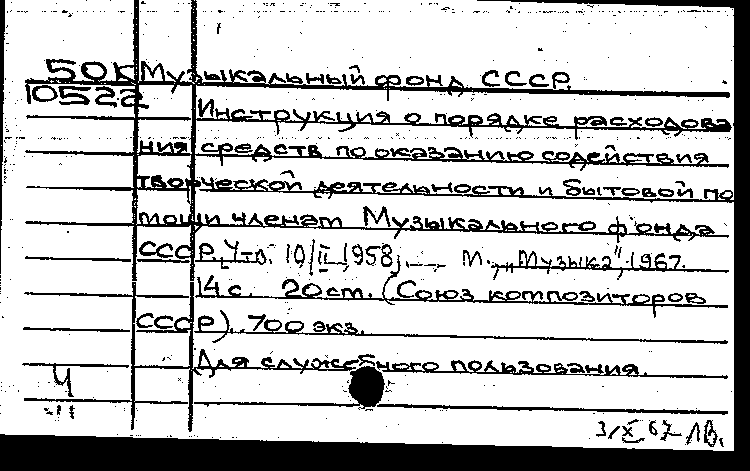 50К Музыкальный фонд СССР.
10522
Инструкция о порядке расходова
ния средств по оказанию содействия
творческой деятельности и бытовой по
мощи членам Музыкального фонда
СССР. [Утв. 10/II 1958]. — М., „Музыка", 1967.
14 с. 20 см. (Союз композиторов
СССР). 700 экз.
Для служебного пользования.
Ч
3/X 67 ЛВ.